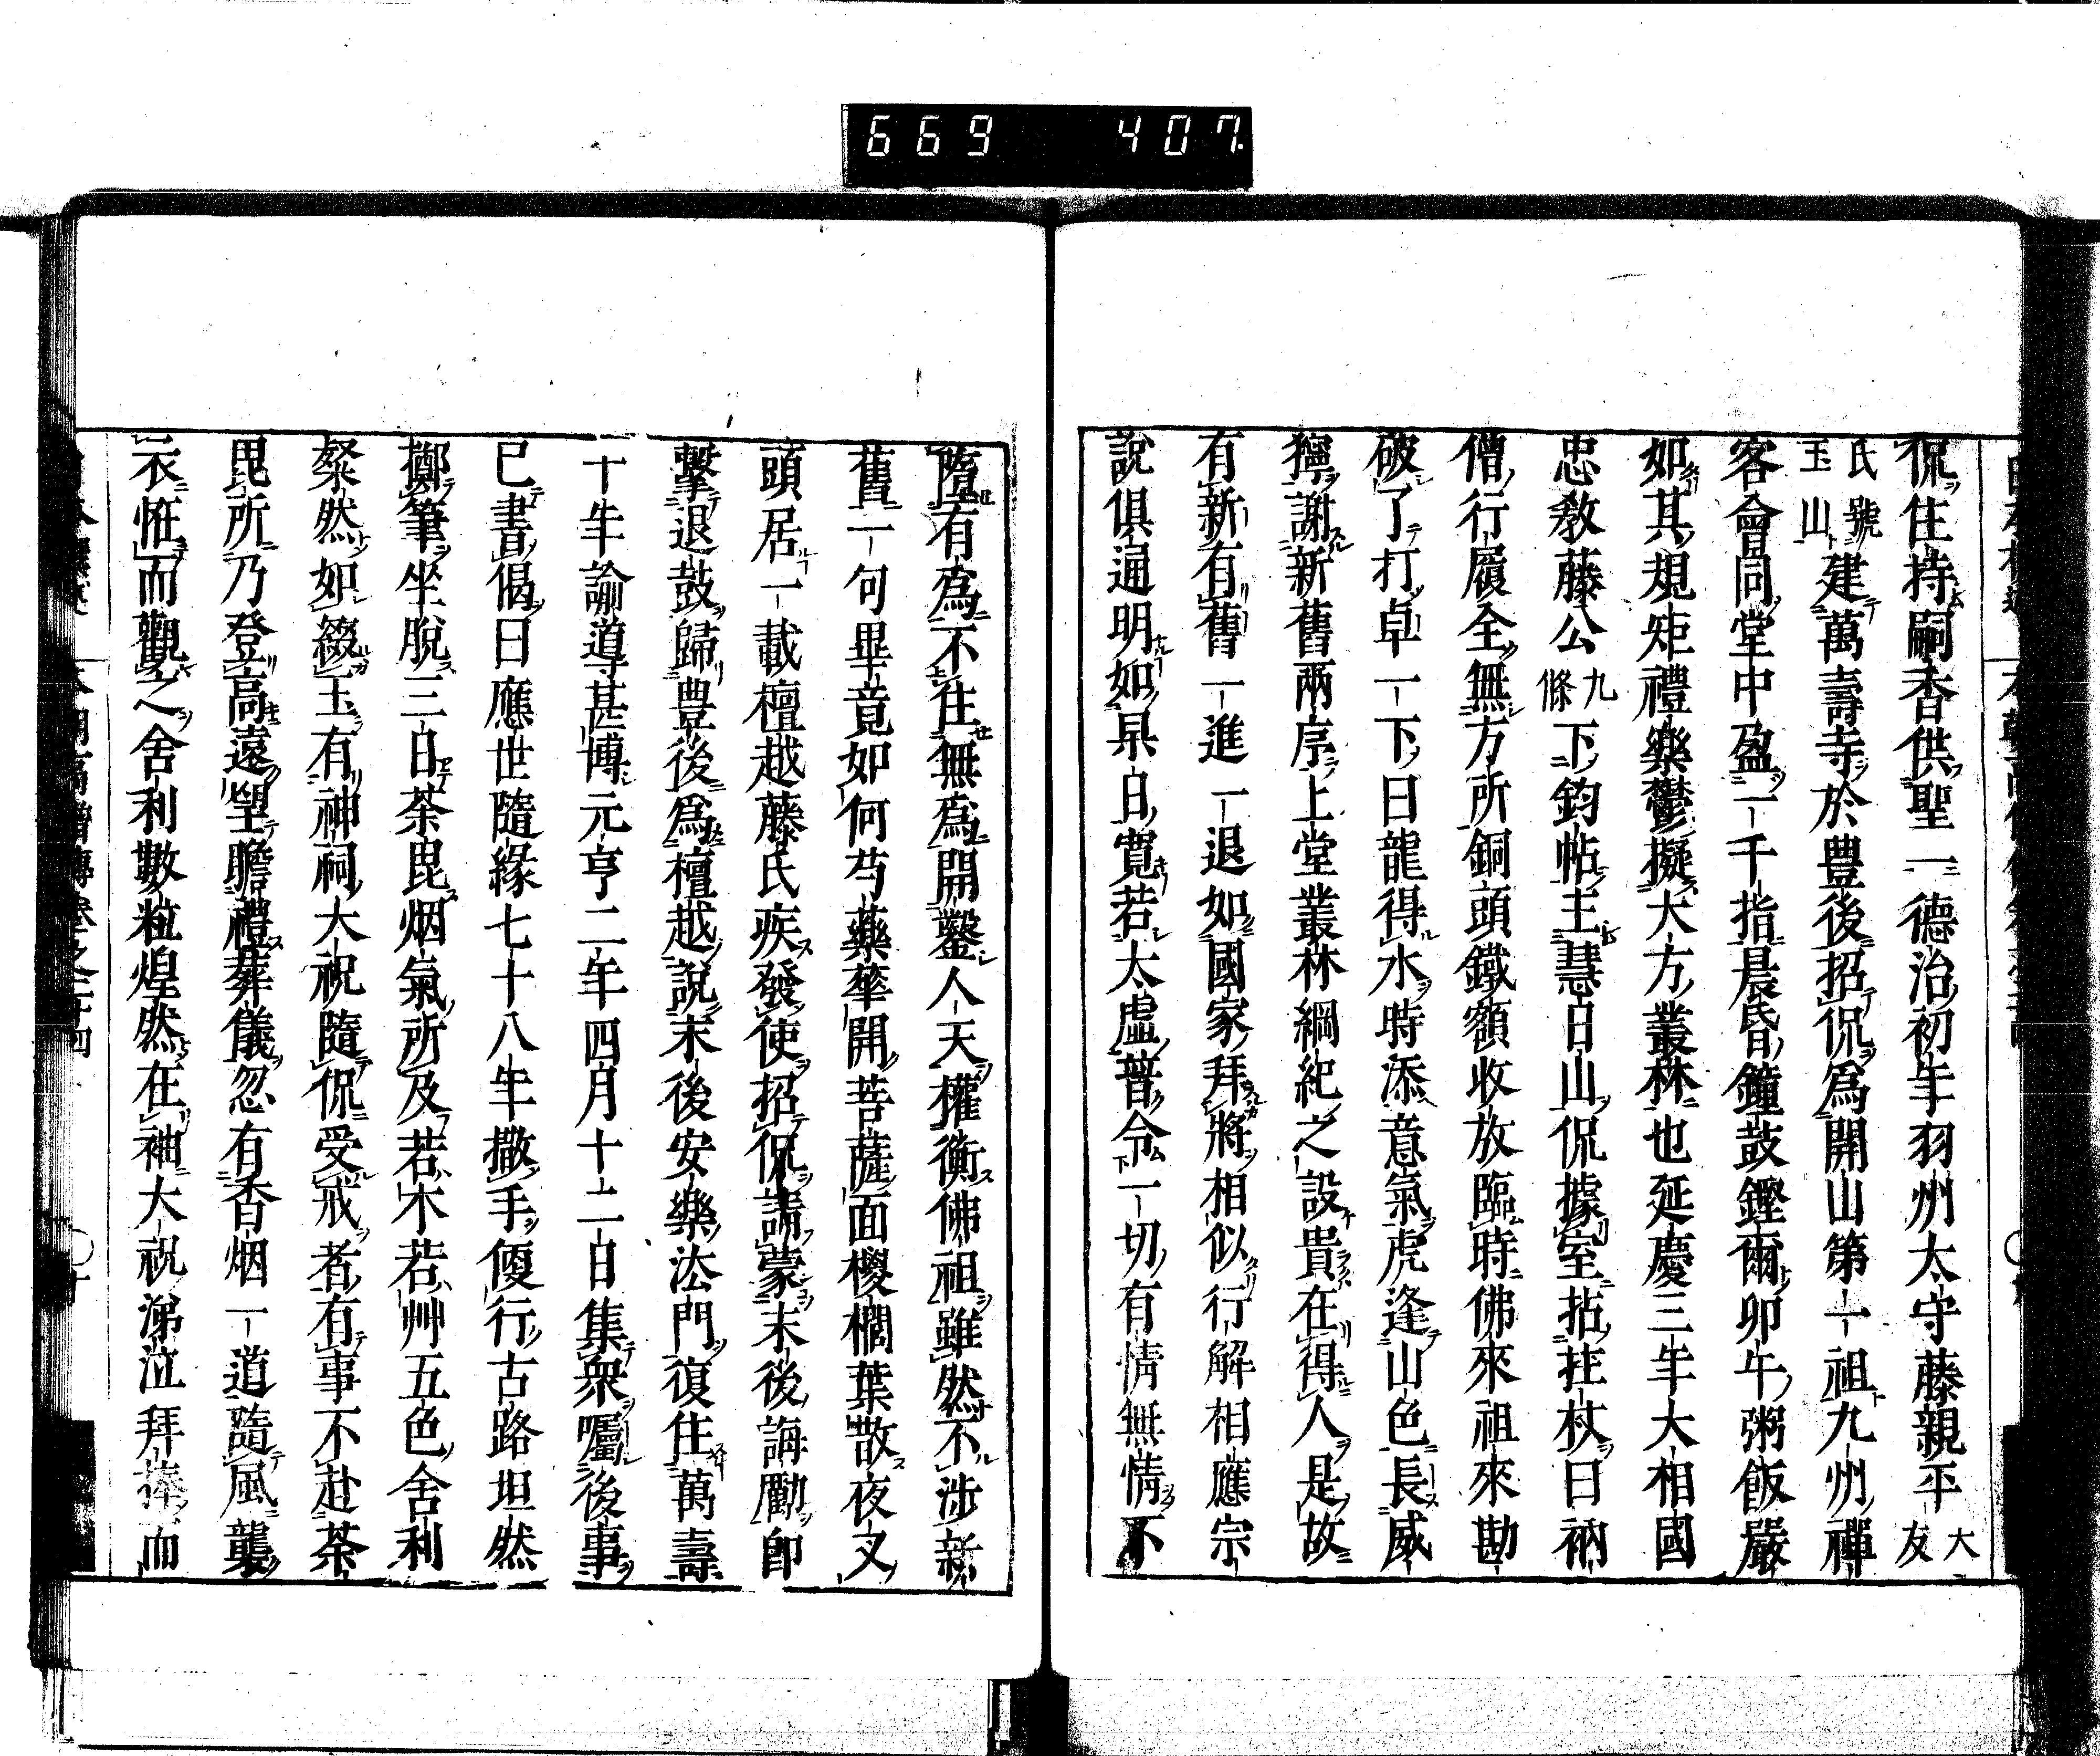 669 407
侃住持嗣香供聖一德治初年羽州太守藤親平大友
氏號玉山建萬壽寺於豊後招侃爲開山第一祖九州禪
客會同堂中盈一千指晨昏鐘鼓鏗爾卯午粥飯嚴
如其規矩禮樂鬱擬大方叢林也延慶三年大相國
忠敎藤公九條下鈞帖主慧日山侃據室拈拄杖曰衲
僧行履全無方所銅頭鐵額收放臨時佛來祖來勘
破了打卓一下曰龍得水時添意氣虎逢山色長威
獰謝新舊兩序上堂叢林綱紀之設貴在得人是故
有新有舊一進一退如國家拜將相似行解相應宗
說俱通明如杲日寬若太虛普令一切有情無情不
墮有爲不住無爲開鑿人天權衡佛祖雖然不涉新
舊一句畢竟如何芍藥華開菩薩面椶櫚葉散夜叉
頭居一載檀越藤氏疾發使招侃請蒙末後誨勵即
擊退鼓歸豊後爲檀越說末後安樂法門復住萬壽
十年諭導甚博元亨二年四月十二日集衆囑後事
已書偈曰應世隨緣七十八年撒手便行古路坦然
擲筆坐脫三日荼毘烟氣所及若木若艸五色舍利
粲然如綴玉有神祠大祝隨侃受戒者有事不赴荼
毘所乃登高遠望瞻禮葬儀忽有香烟一道隨風襲
衣怪而觀之舍利數粒煌然在袖大祝涕泣拜捧而